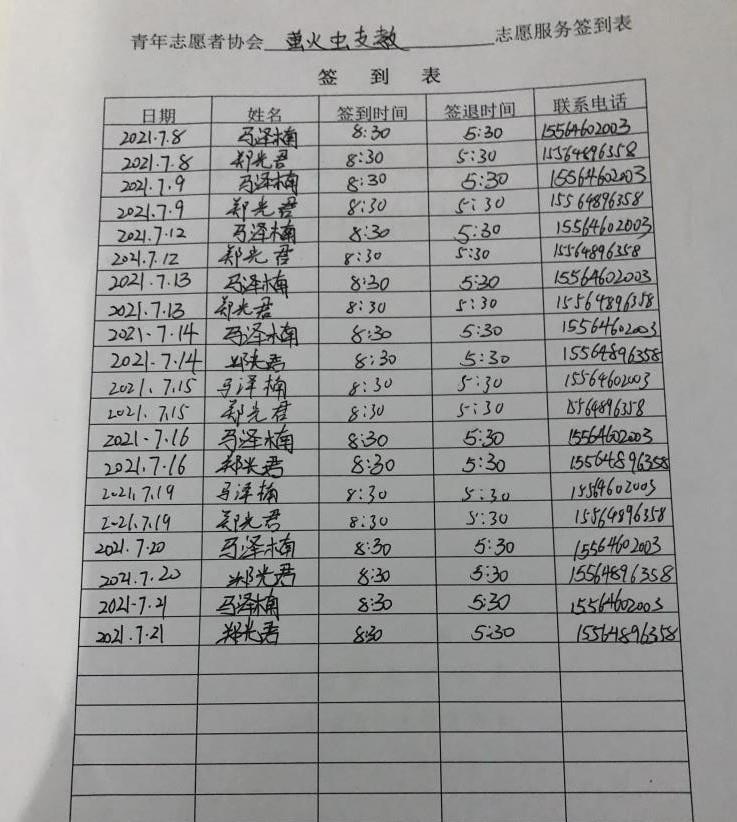 青年志愿者协会 萤火虫支教 志愿服务签到表
签 到 表
日期 姓名 签到时间 签退时间 联系电话
2021.7.8 马泽楠 8:30 5:30 15564602003
2021.7.8 郑光君 8:30 5:30 15564896358
2021.7.9 马泽楠 8:30 5:30 15564602003
2021.7.9 郑光君 8:30 5:30 15564896358
2021.7.12 马泽楠 8:30 5:30 15564602003
2021.7.12 郑光君 8:30 5:30 15564896358
2021.7.13 马泽楠 8:30 5:30 15564602003
2021.7.13 郑光君 8:30 5:30 15564896358
2021.7.14 马泽楠 8:30 5:30 15564602003
2021.7.14 郑光君 8:30 5:30 15564896358
2021.7.15 马泽楠 8:30 5:30 15564602003
2021.7.15 郑光君 8:30 5:30 15564896358
2021.7.16 马泽楠 8:30 5:30 15564602003
2021.7.16 郑光君 8:30 5:30 15564896358
2021.7.19 马泽楠 8:30 5:30 15564602003
2021.7.19 郑光君 8:30 5:30 15564896358
2021.7.20 马泽楠 8:30 5:30 15564602003
2021.7.20 郑光君 8:30 5:30 15564896358
2021.7.21 马泽楠 8:30 5:30 15564602003
2021.7.21 郑光君 8:30 5:30 15564896358